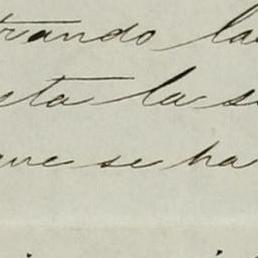 trando la
sta la s
que se ha